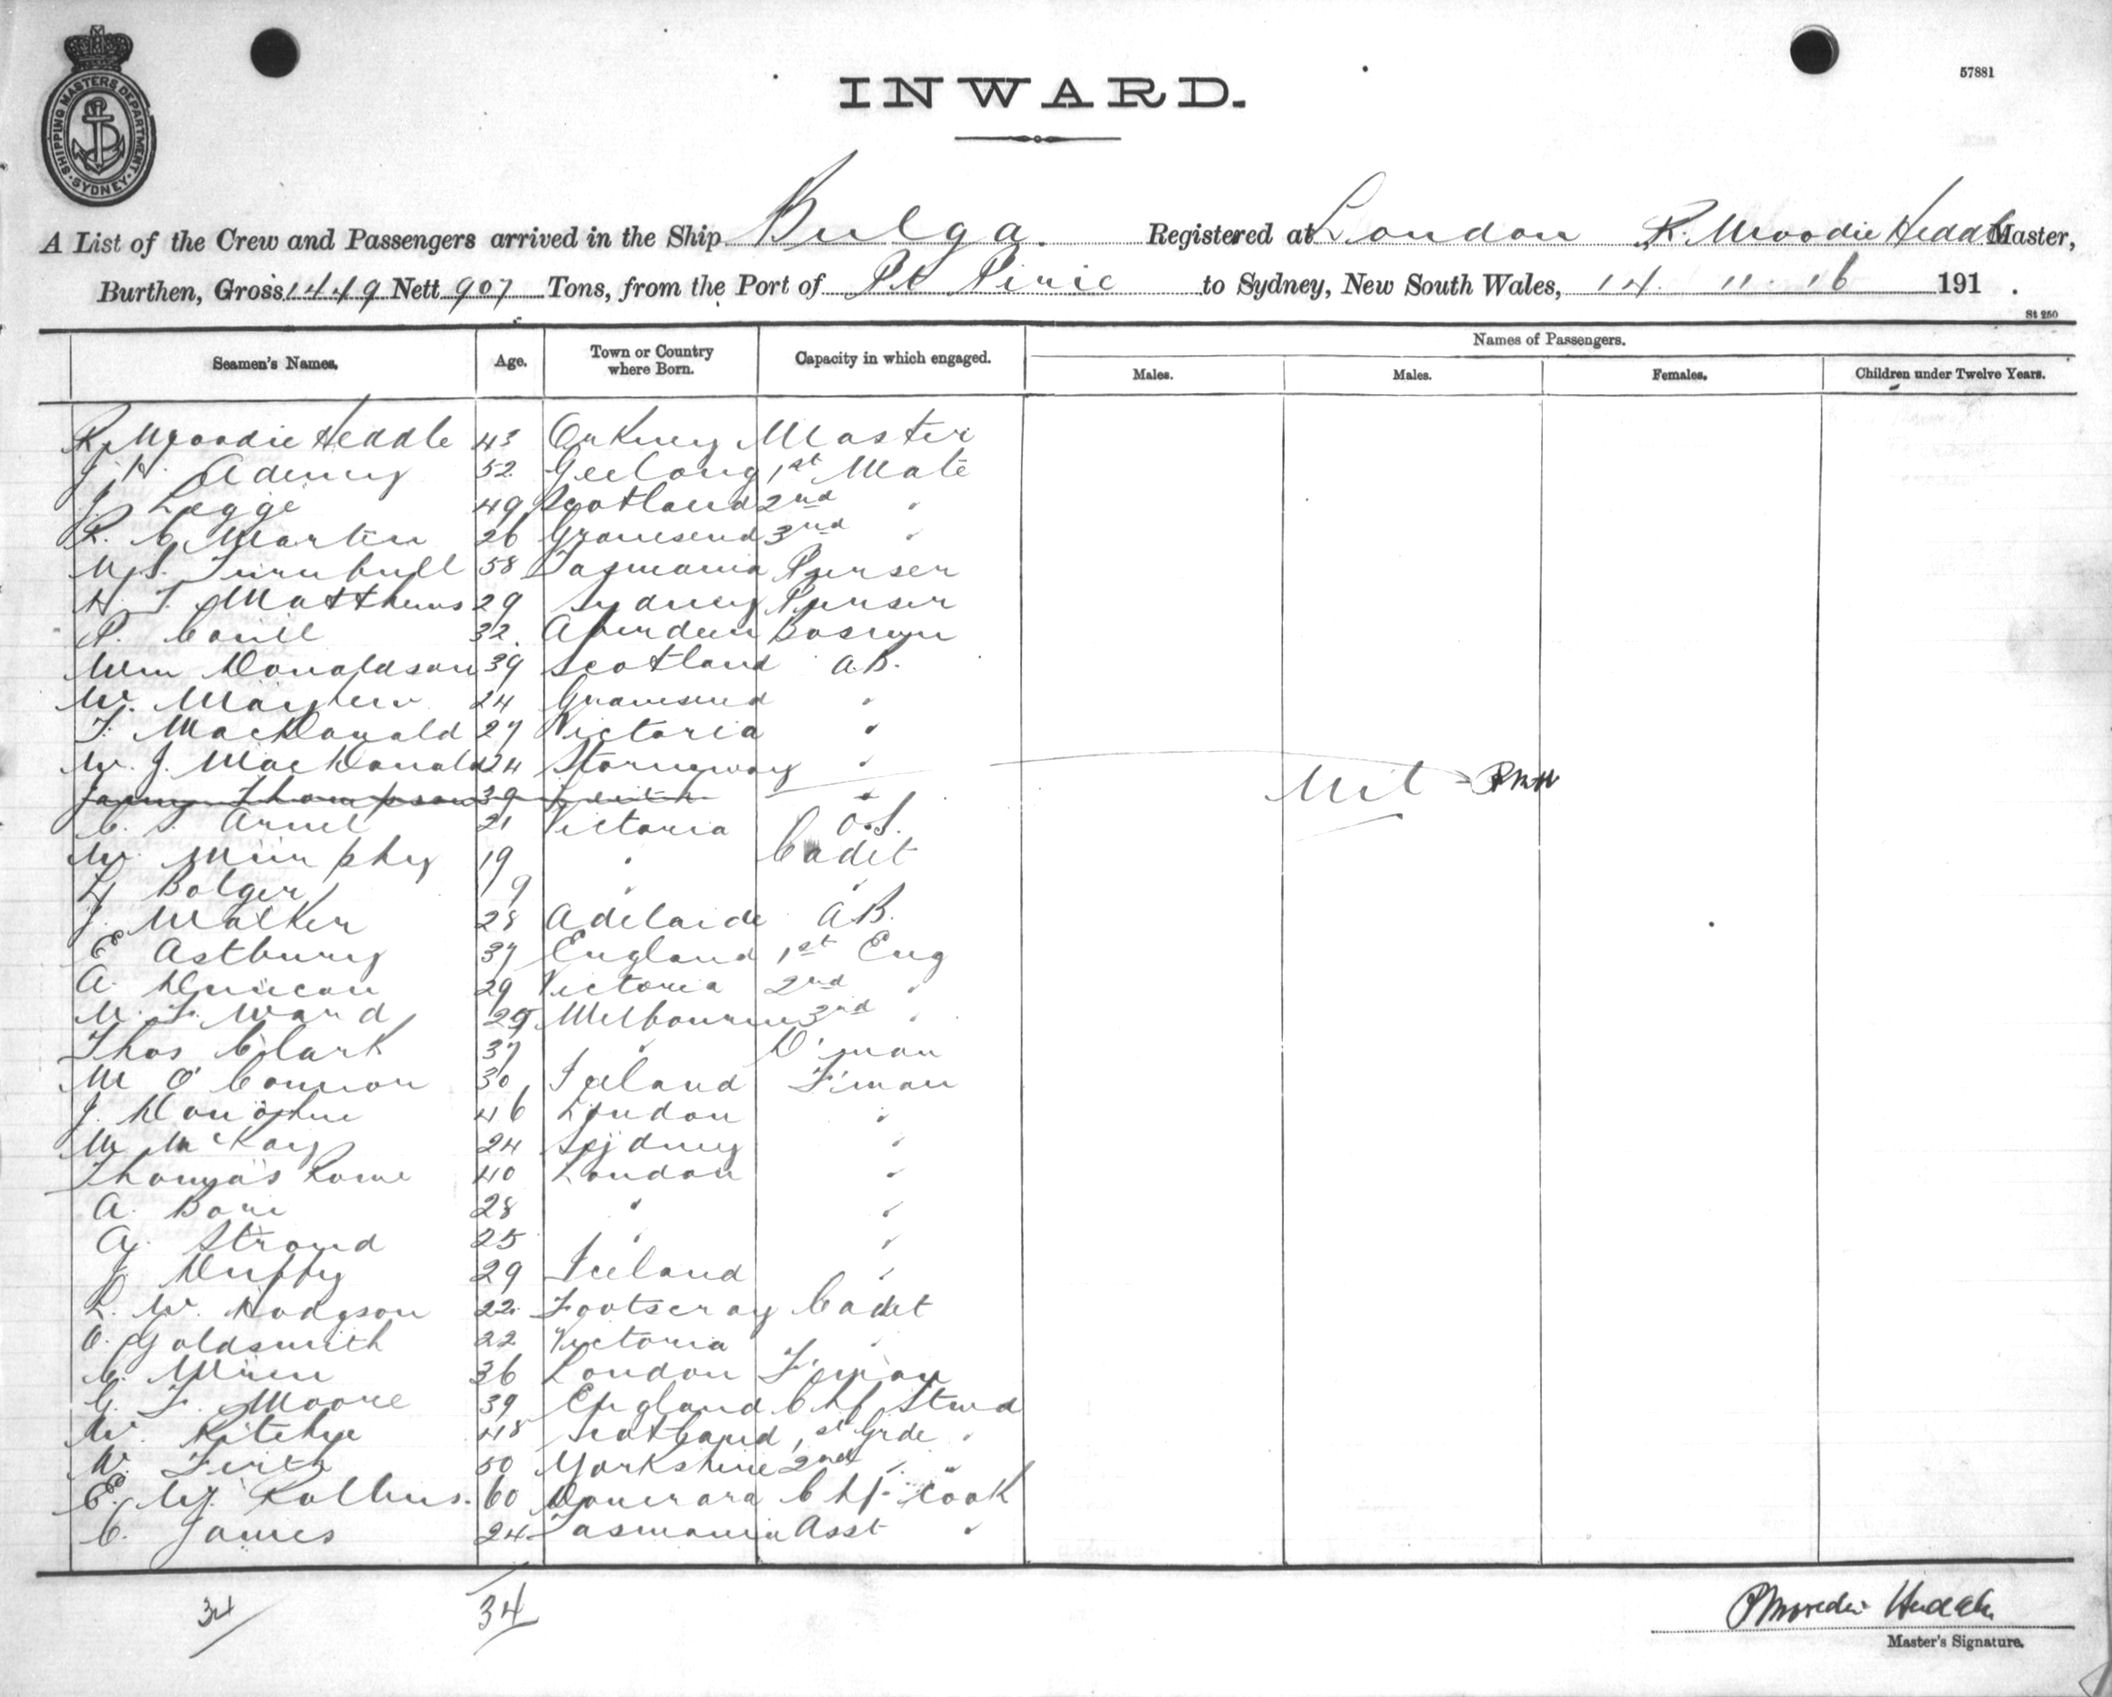 SHIPPING MASTERS DEPARTMENT. SYDNEY.
57881
INWARD.
A List of the Crew and Passengers arrived in the Ship Bulga. Registered at London R. Moodie Heddle Master,
Burthen, Gross 1449 Nett 907 Tons, from the Port of Pt Pirie to Sydney, New South Wales, 14. 11. 16 191 .
St 250
Seamen's Names. Age. Town or Country where Born. Capacity in which engaged. Names of Passengers.
Males. Males. Females. Children under Twelve Years.
R. Moodie Heddle 43 Orkney Master
J. H. Adeney 52 Geelong 1st Mate
J. Legge 49 Scotland 2nd "
R. C. Martin 26 Gravesend 3rd "
Turnbull 58 Tasmania Purser
H. T. Matthews 29 Sydney Purser
P. 32 Aberdeen Boswn
Wm Donaldson 39 Scotland A.B.
W. Mayhew 24 Gravesend "
T. MacDonald 27 Victoria "
W. J. MacDonald 24 Stornoway "
Thompson 39 Leith "
Nil - RMH
C. S. 21 Victoria O.S.
W. Murphy 19 " Cadet
Bolger 19 " "
J. Walker 28 Adelaide A.B.
E Astbury 37 England 1st Eng
A. Duncan 29 Victoria 2nd "
M. F. Ward 29 Melbourne 3rd "
Thos Clark 37 " D'man
M O'Connor 30 Ireland F'man
J. Donohue 46 London "
M McKay 24 Sydney "
Thomas Rowe 40 London "
A. 28 " "
A. Stroud 25 " "
J. Duffy 29 Ireland "
L. W. Hodgson 22 Footscray Cadet
O. Goldsmith 22 Victoria "
C. Wren 36 London F'man
G. F. Moore 39 England Chf Stwd
W. Ritchie 48 Scotland 1st Grde "
W. Firth 50 Yorkshire 2nd " "
E. W. Rollins. 60 Demerara Chf. Cook
C. James 24 Tasmania Asst "
34 34
R Moodie Heddle
Master's Signature.